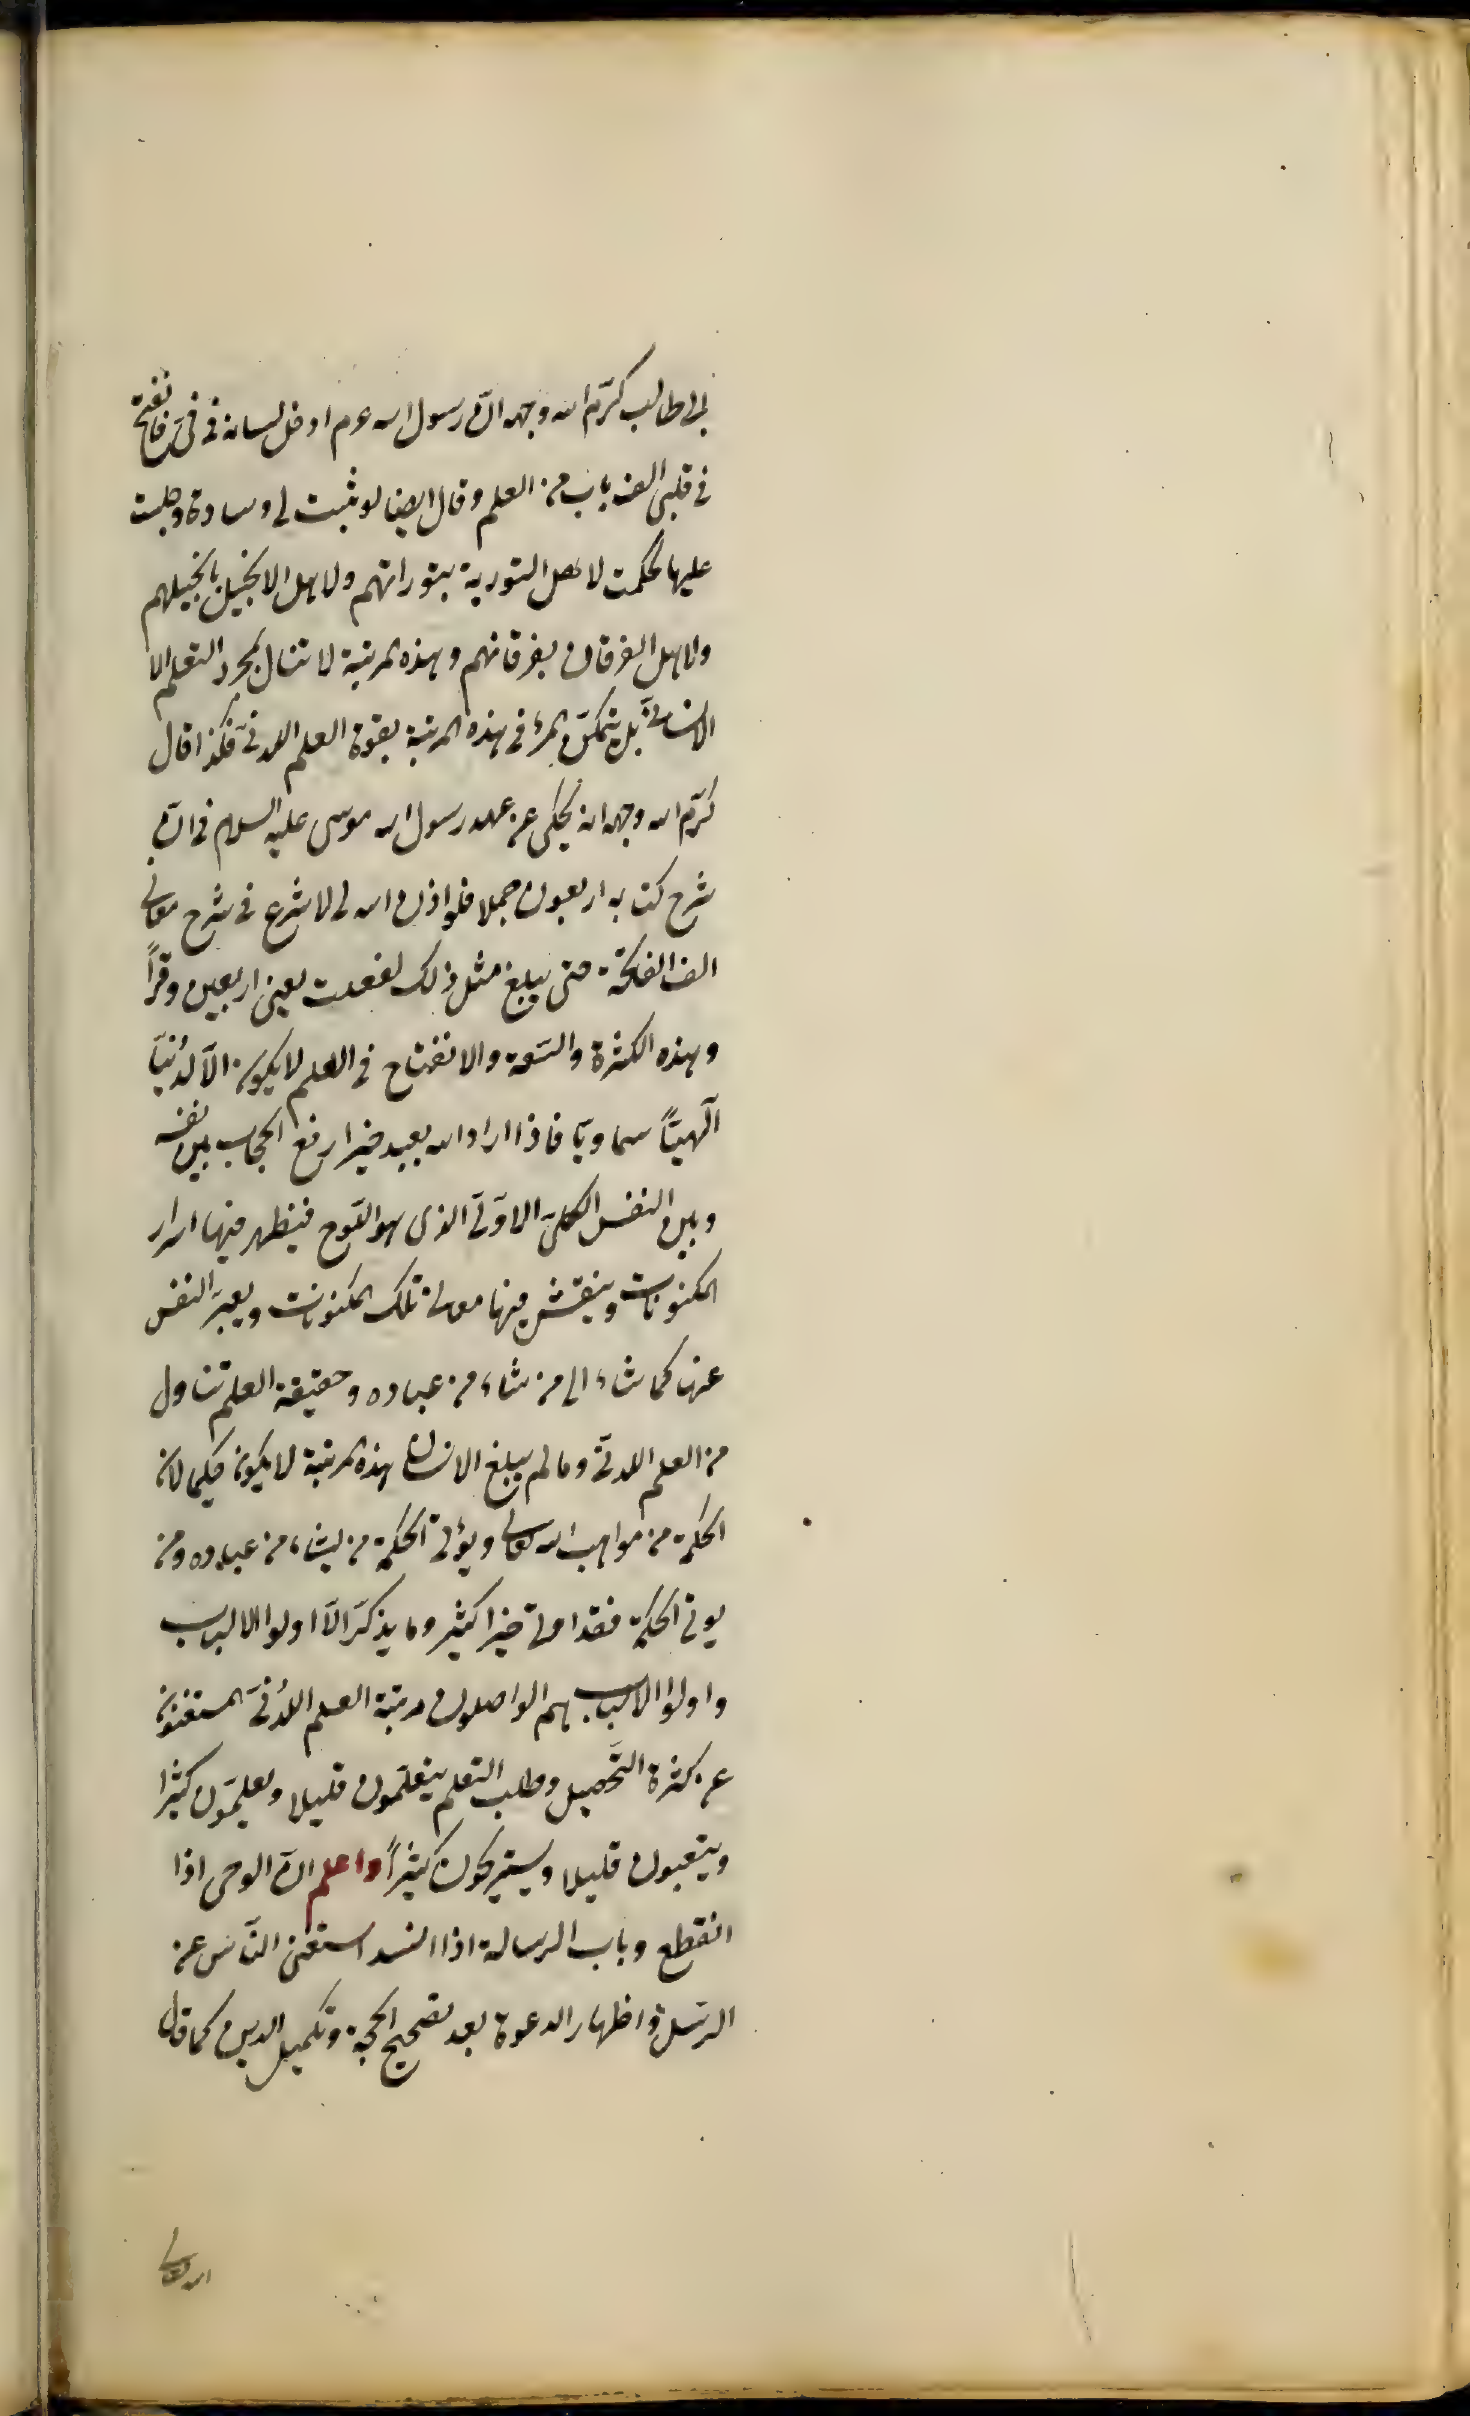 ابى طالب كرّم الله وجهه انّ رسول الله عرم ادخل لسانه فى فىّ فانفتح
فى قلبى الف باب من العلم وقال ايضا لو ثبت لى وسادة وجلست
عليها لحكمت لاهل التورية بتوراتهم ولاهل الانجيل بانجيلهم
ولاهل الفرقان بفرقانهم وهذه المرتبة لا تنال بمجرد التعلم الا
الانسانىّ بل يتمكّن المرء فى هذه المرتبة بقوة العلم اللدنىّ فكذا قال
كرّم الله وجهه انه يحكى عن عهد رسول الله موسى عليه السلام فى انّ
شرح كتابه اربعون جملا فلو اذن الله لى لاشرع فى شرح معانى
الف الفاتحة حتى يبلغ مثل ذلك لفعلت يعنى اربعين وقرًا
وهذه الكثرة والسّعة والانفتاح فى العلم لا يكون الّا لدُنيّا
آلهيّاً سماويّا فاذا اراد الله بعبد خيرا رفع الحجاب بين نفسه
وبين النفس الكلىّ الاوّلى الذى هو اللّوح فيظهر فيها اسرار
المكنونات وينقش فيها معانى تلك المكنونات ويعبّر النفس
عنها كما شاء الى من شاء من عباده وحقيقة العلم تناول
من العلم اللدنّى وما لم يبلغ الانسان هذه المرتبة لا يكون حكيما لان
الحكمة من مواهب الله تعالى ويؤتى الحكمة من يشاء من عباده ومن
يوتى الحكمة فقد اوتى خيرا كثير وما يذكّر الّا اولوا الالباب
واولوا الالباب هم الواصلون مرتبة العلم اللدُنىّ المستغنون
عن كثرة التّحصيل وطلب التعلم يتعلّمون قليلا ويعلّمون كثيرا
ويتعبون قليلا ويستريحون كثيراً واعلم انّ الوحى اذا
انقطع وباب الرسالة اذا انسد استغنى النّاس عن
الرّسل واظهار الدعوة بعد تصحيح الحجة وتكميل الدين كما قال
الله تعالى